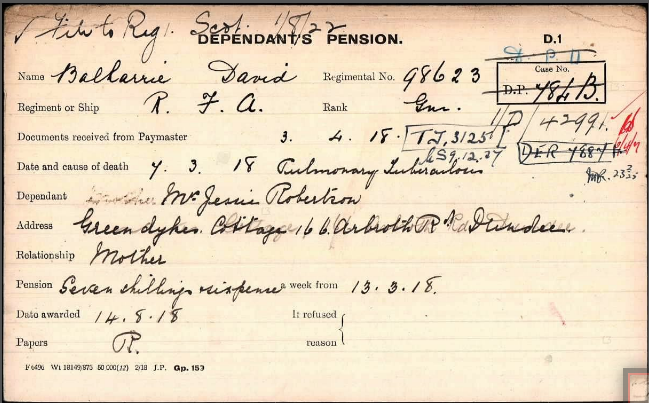 ✓ File to Reg. Scot. 1/8/22
DEPENDANT'S PENSION. D.1
Name Balharrie David Regimental No. 98623 Case No. D.P. 784B.
Regiment or Ship R. F. A. Rank Gnr. 1/D/42991.
Documents received from Paymaster 3. 4. 18. TJ.3125 DER 7887
Date and cause of death 7. 3. 18 Pulmonary Tuberculous
Dependant Mrs Jessie Robertson
Address Greendykes Cottage 166 Arbroath Rd Dundee.
Relationship Mother
Pension Seven shillings & sixpence week from 13.3.18.
Date awarded 14.8.18 If refused
Papers R. reason
F6496 Wt 18149/873 50,000(12) 2/18 J.P. Gp. 153